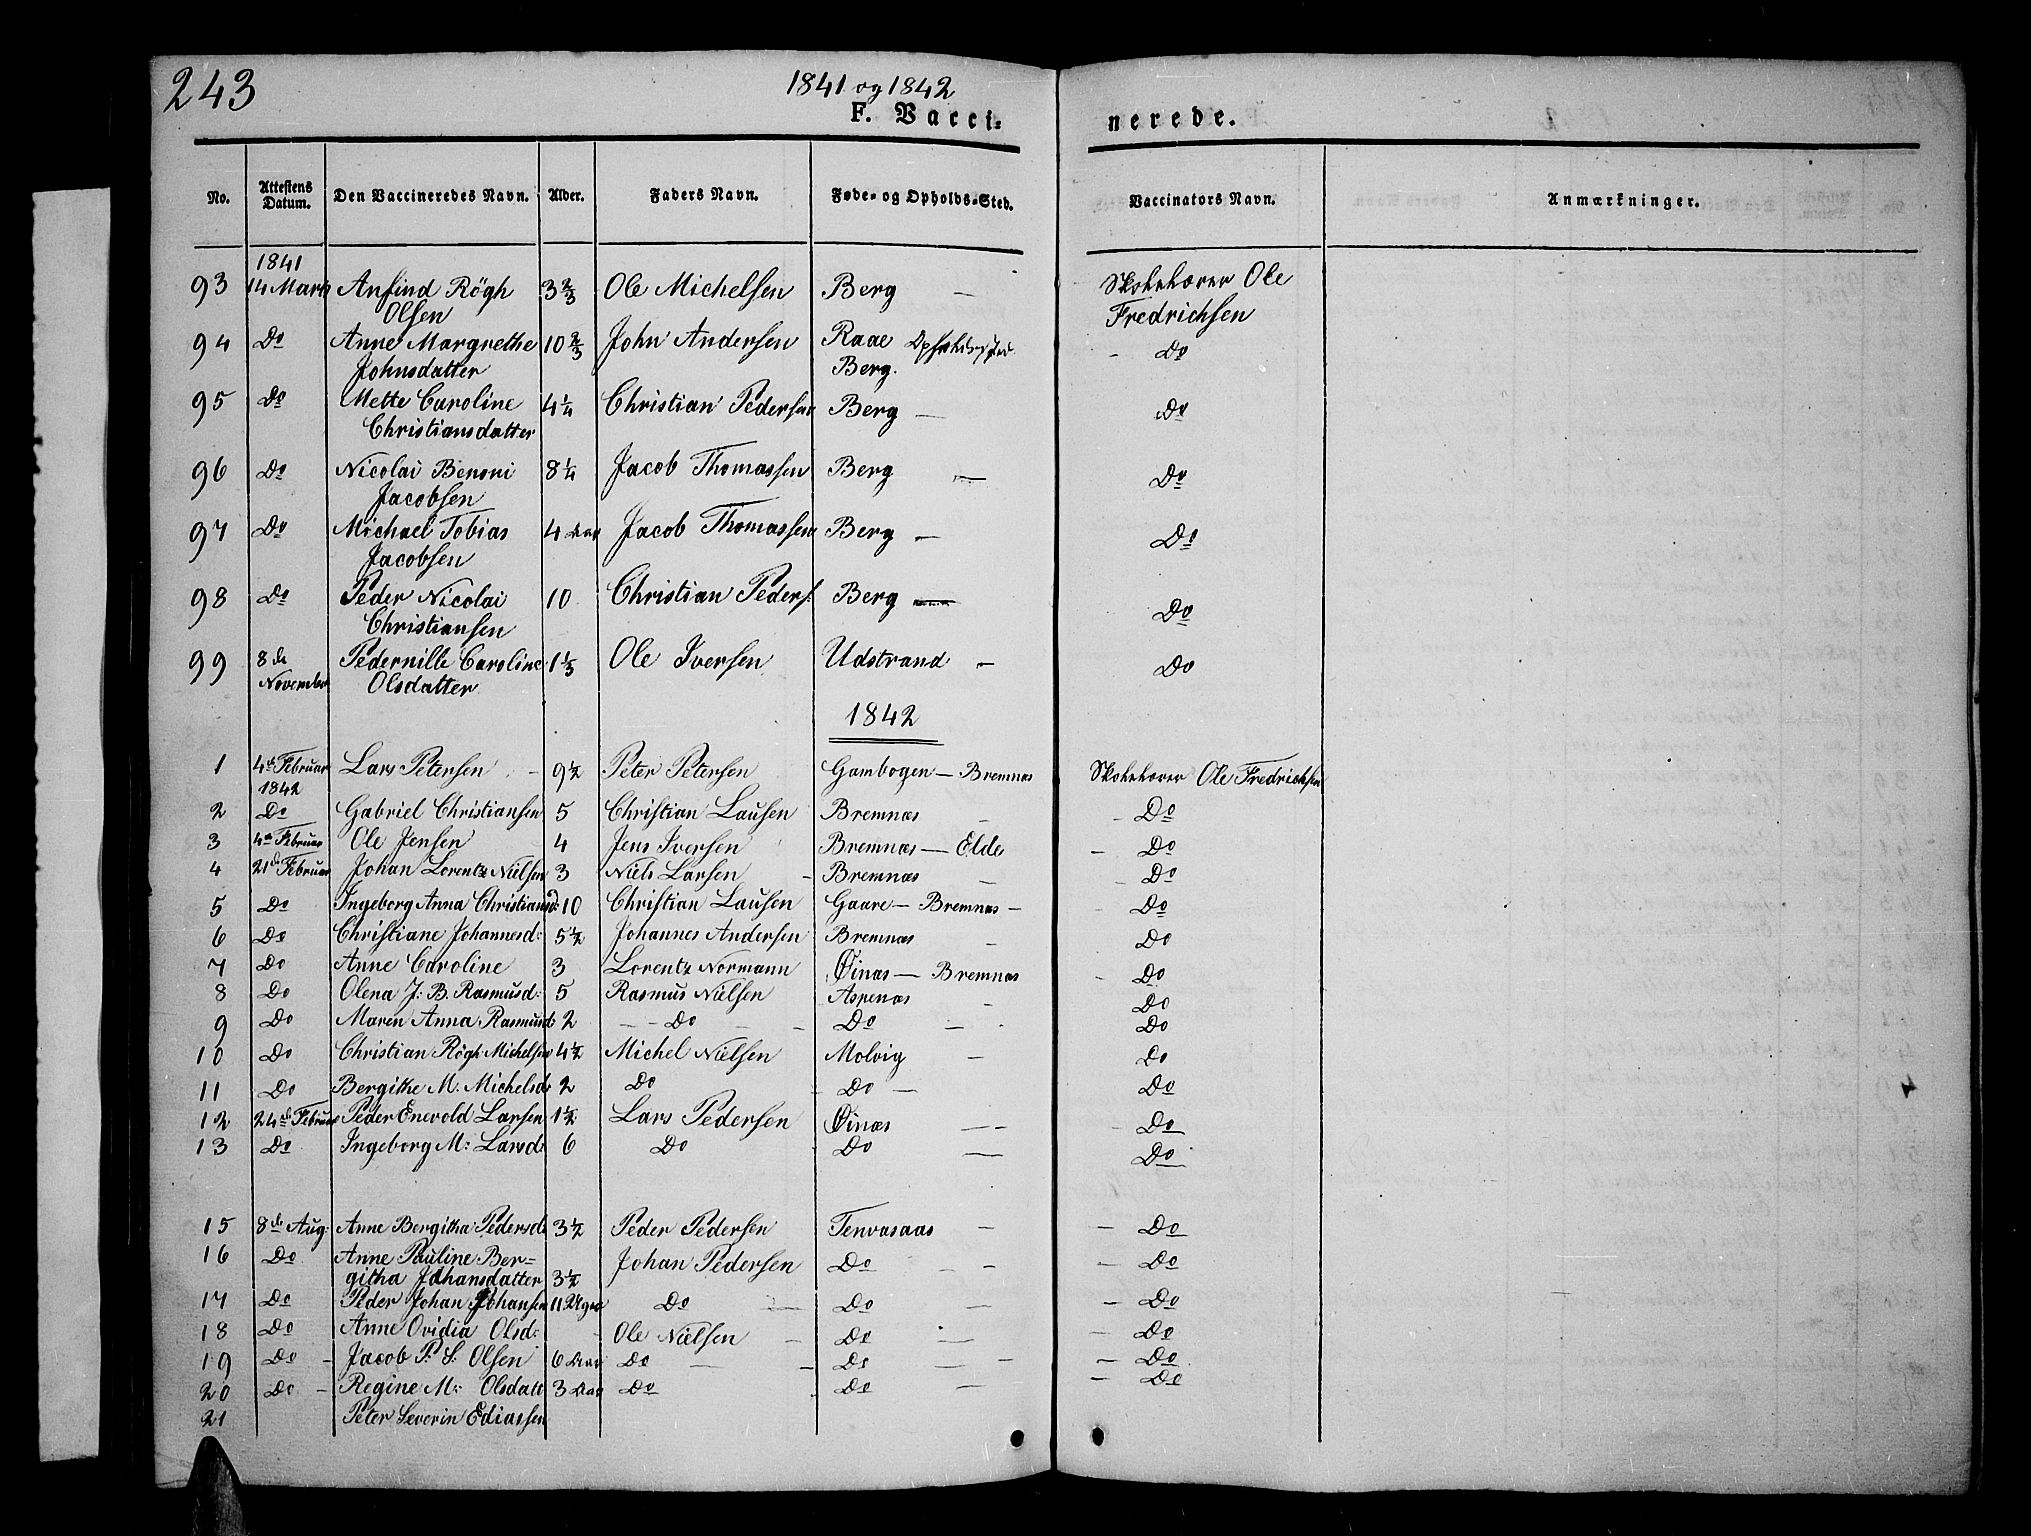 243
1841 og 1842
F. Vacci-
nerede.
No. Attestens Datum. Den Vaccineredes Navn. Alder. Faders Navn. Føde- og Opholds-Sted. Vaccinators Navn. Anmærkninger.
1841
93 14 Marts Anfind Rögh 3 2/3 Ole Michelsen Berg — Skoleherer Ole
Olsen Fredrichsen
94 Do Anne Margrethe 10 2/3 John Andersen Raae Opholdssted - Do
Johnsdatter Berg.
95 Do Mette Caroline 4 1/4 Christian Pedersen Berg — Do
Christiansdatter
96 Do Nicolai Benoni 8 1/4 Jacob Thomassen Berg — Do
Jacobsen
97 Do Michael Tobias 4 Aar Jacob Thomassen Berg — Do
Jacobsen
98 Do Peder Nicolai 10 Christian Peders. Berg — Do
Christiansen
99 8de Pedernille Caroline 1 1/3 Ole Iversen Udstrand — Do
November Olsdatter
1842
1 4de Februar Lars Petersen 9 1/2 Peter Petersen Gambogen — Bremnæs Skoleherer Ole Fredrichsen
1842
2 Do Gabriel Christiansen 5 Christian Lausen Bremnæs - Do
3 4de Februar Ole Jensen 4 Jens Iversen Bremnæs — Elde - Do
4 21de Februar Johan Lorentz Nielsen 3 Niels Larsen - Bremnæs - Do
5 Do Ingeborg Anna Christiansd: 10 Christian Lausen Gaare — Bremnæs — Do
6 Do Christiane Johannesd: 5 1/2 Johannes Andersen Bremnæs - Do
7 Do Anne Caroline 3 Lorentz Normann Øinæs — Bremnæs - Do
8 Do Olena J: B. Rasmusd: 5 Rasmus Nielsen Aspenæs - Do
9 Do Maren Anna Rasmusd: 2 - - Do - - Do - Do
10 Do Christian Rögh Michelsen 4 1/2 Michel Nielsen Molvig - Do
11 Do Bergithe M: Michelsd: 2 Do - Do - Do
12 24de Februar Peder Enevold Larsen 1 1/2 Lars Pedersen Øinæs — Do
13 Do Ingeborg M: Larsd: 6 Do Do — Do
15 8de Aug: Anne Bergitha Pedersd: 3 1/2 Peder Pedersen Tenvasaas - - Do
16 Do Anne Pauline Ber- Johan Pedersen Do - - - Do
githa Johansdatter 3 1/2
17 Do Peder Johan Johansen 11 Ugr Do — Do - - Do
18 Do Anne Ovidia Olsd: - Ole Nielsen - Do — - Do
19 Do - Jacob P. S. Olsen 6 Aar Do — - Do — - - Do
20 Do - Regine M: Olsdatt 3 Aar Do Do — - Do
21 Peter Severin Ediassen